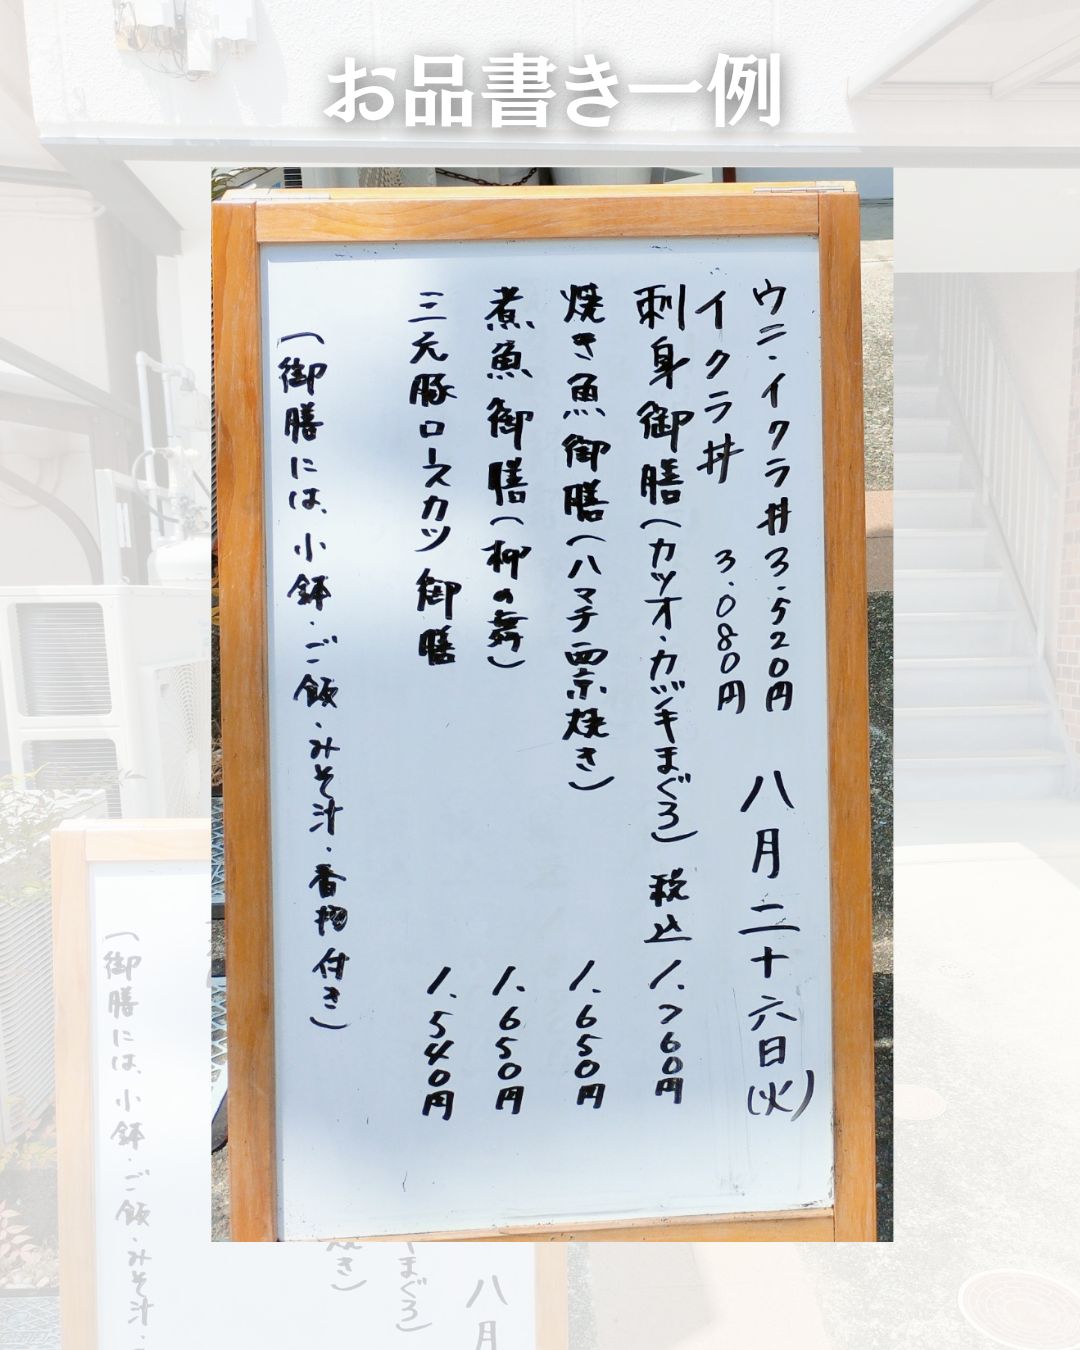 お品書き一例
ウニ・イクラ丼 3.520円
イクラ丼 3.080円
八月二十六日(火)
刺身御膳(カツオ・カヅキまぐろ) 税込 1.760円
焼き魚御膳(ハマチ西京焼き) 1.650円
煮魚御膳(柳の舞) 1.650円
三元豚ロースカツ御膳 1.540円
(御膳には、小鉢・ご飯・みそ汁・香物付き)